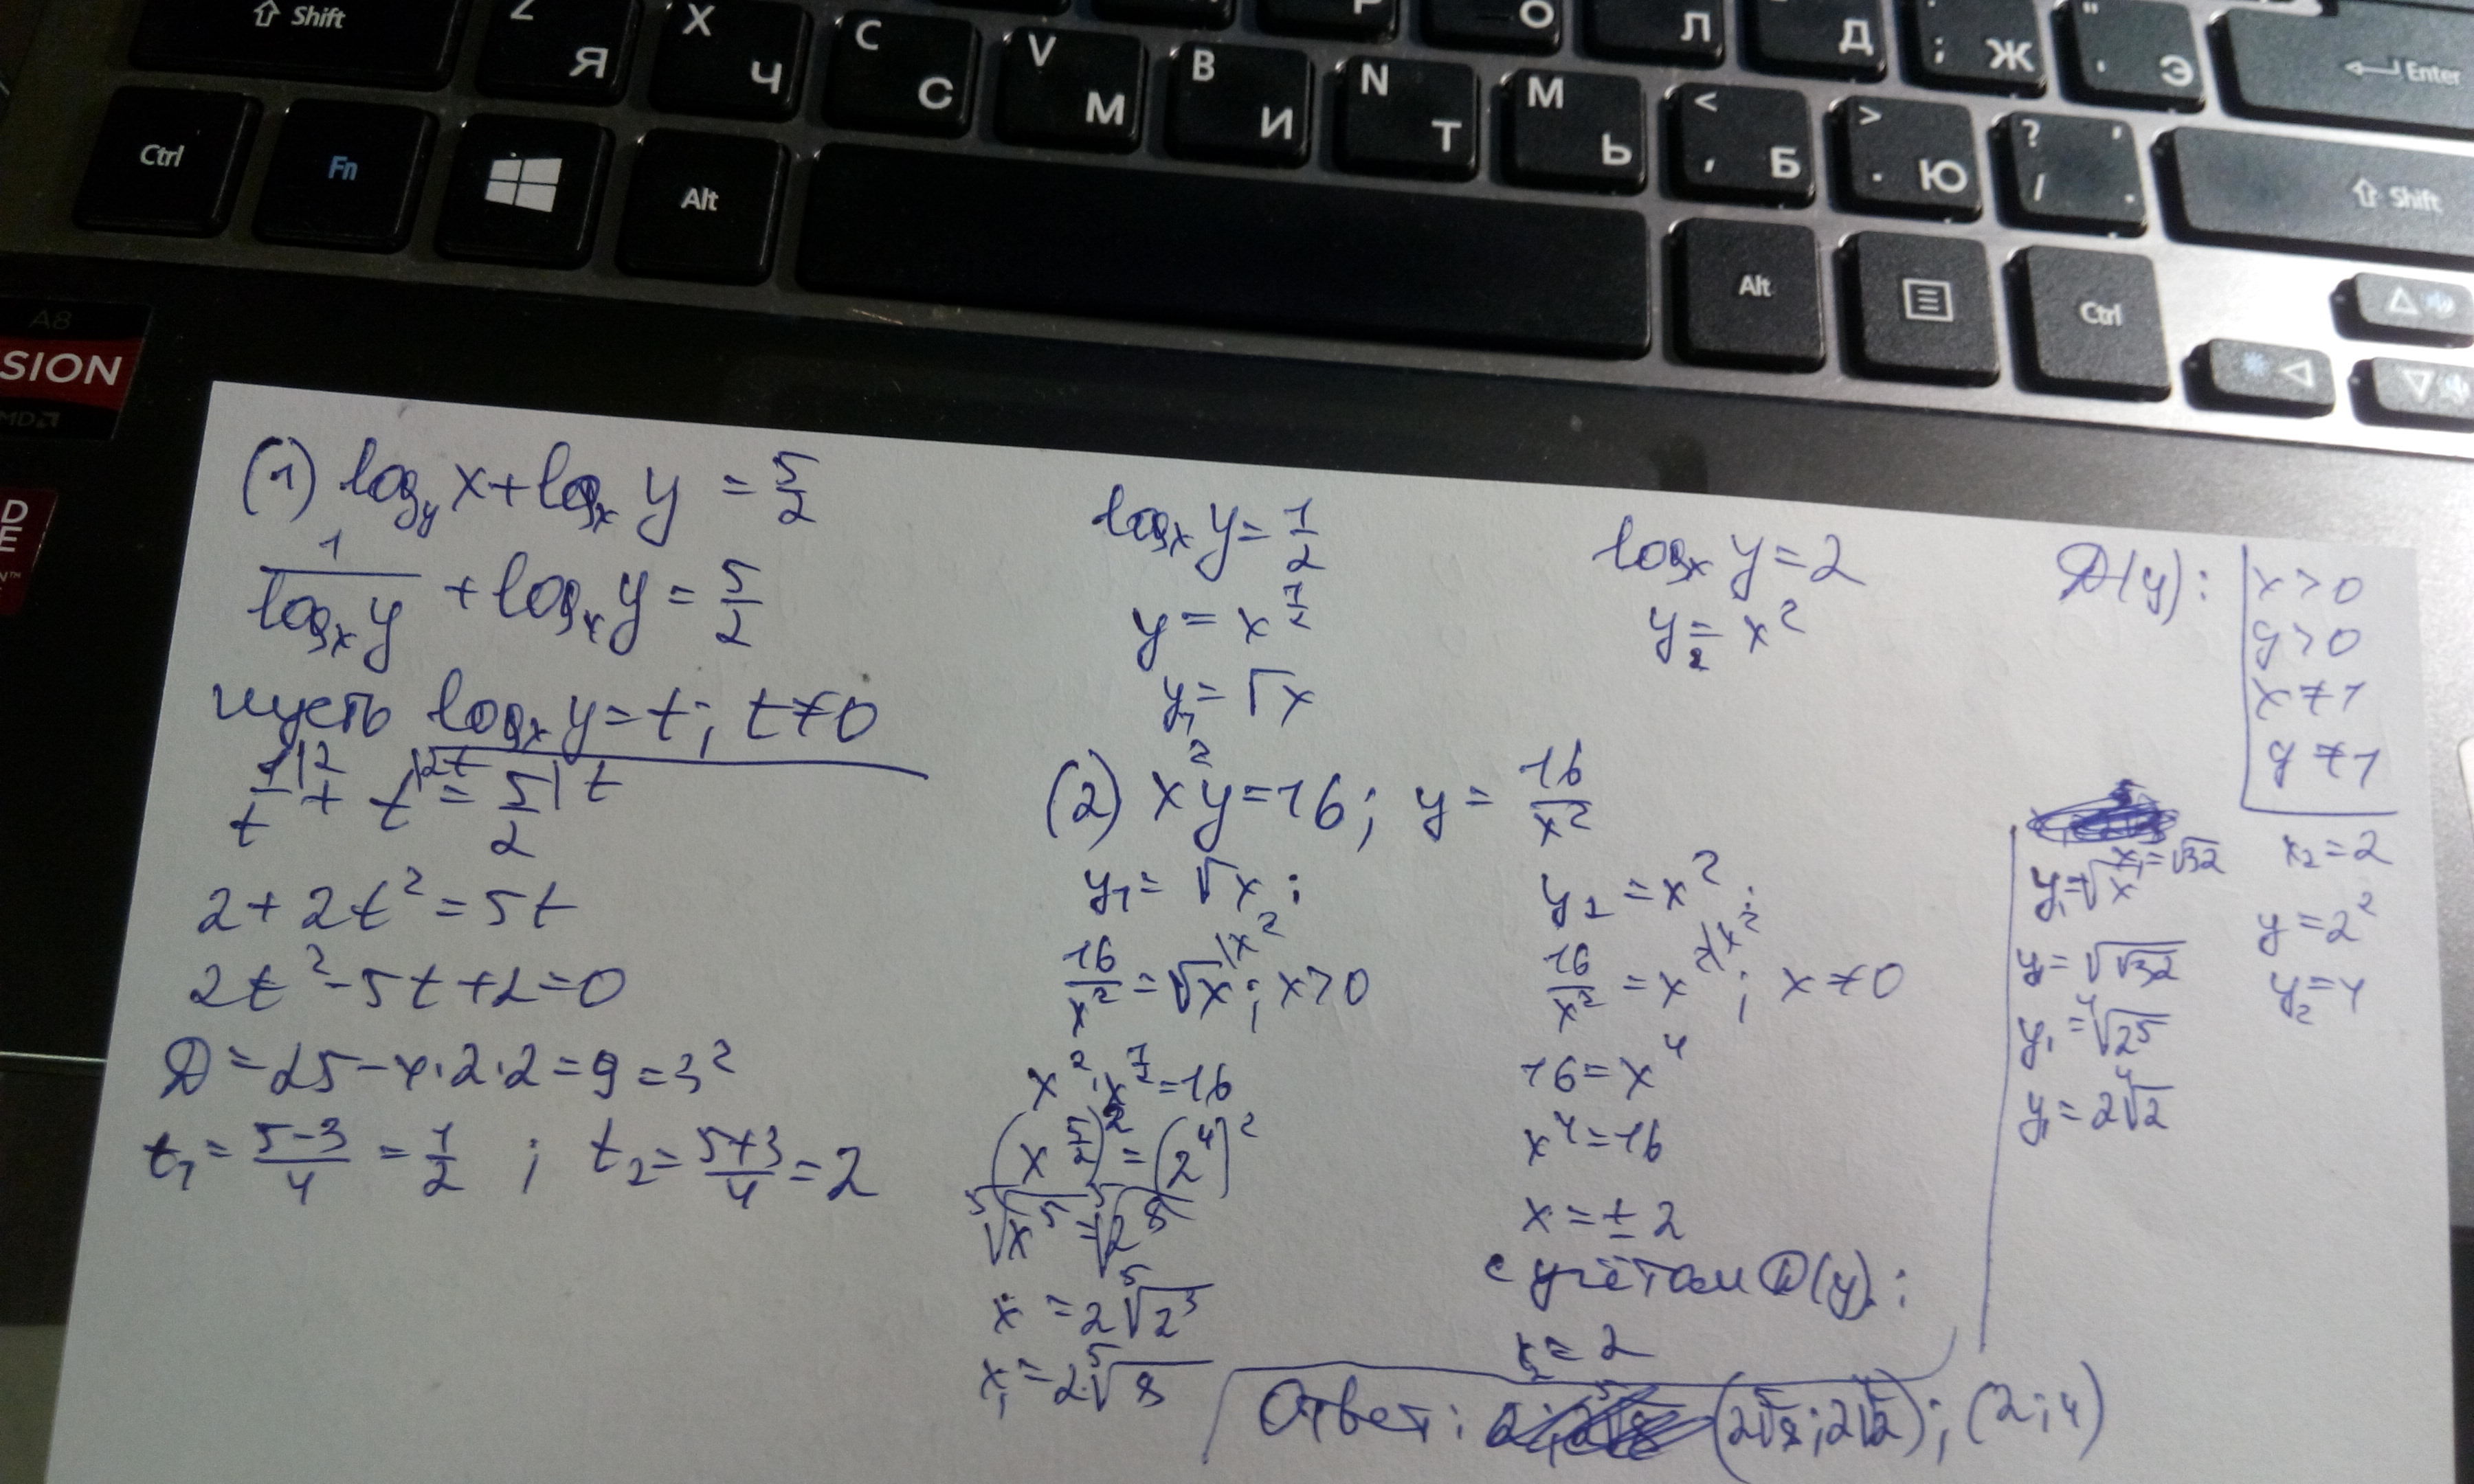 ⇧ Shift
Z Я
X Ч
C С
V М
B И
N Т
M Ь
Л
Д
; Ж
" ' Э
Enter
Ctrl
Fn
Alt
< , Б
> . Ю
? / , .
⇧ Shift
Alt
Ctrl
A8
SION
(1) log_y x + log_x y = 5/2
1/log_x y + log_x y = 5/2
пусть log_x y = t; t ≠ 0
1/t |2 + t |2t = 5/2 |t
2 + 2t² = 5t
2t² - 5t + 2 = 0
D = 25 - 4·2·2 = 9 = 3²
t₁ = (5-3)/4 = 1/2 ; t₂ = (5+3)/4 = 2
log_x y = 1/2
y = x^(1/2)
y₁ = √x
log_x y = 2
y₂ = x²
D(y):
x > 0
y > 0
x ≠ 1
y ≠ 1
(2) x²y = 16; y = 16/x²
y₁ = √x ;
16/x² = √x |x² ; x > 0
x² · x^(1/2) = 16
(x^(5/2))² = (2⁴)²
⁵√x⁵ = ⁵√2⁸
x = 2 ⁵√2³
x₁ = 2 ⁵√8
y₂ = x² ;
16/x² = x² |x² ; x ≠ 0
16 = x⁴
x⁴ = 16
x = ± 2
с учётом D(y):
x₂ = 2
x₁ = √32
y₁ = √x
y = √√32
y₁ = ⁴√2⁵
y₁ = 2 ⁴√2
x₂ = 2
y = 2²
y₂ = 4
Ответ: (2 ⁵√8; 2 ⁴√2); (2; 4)